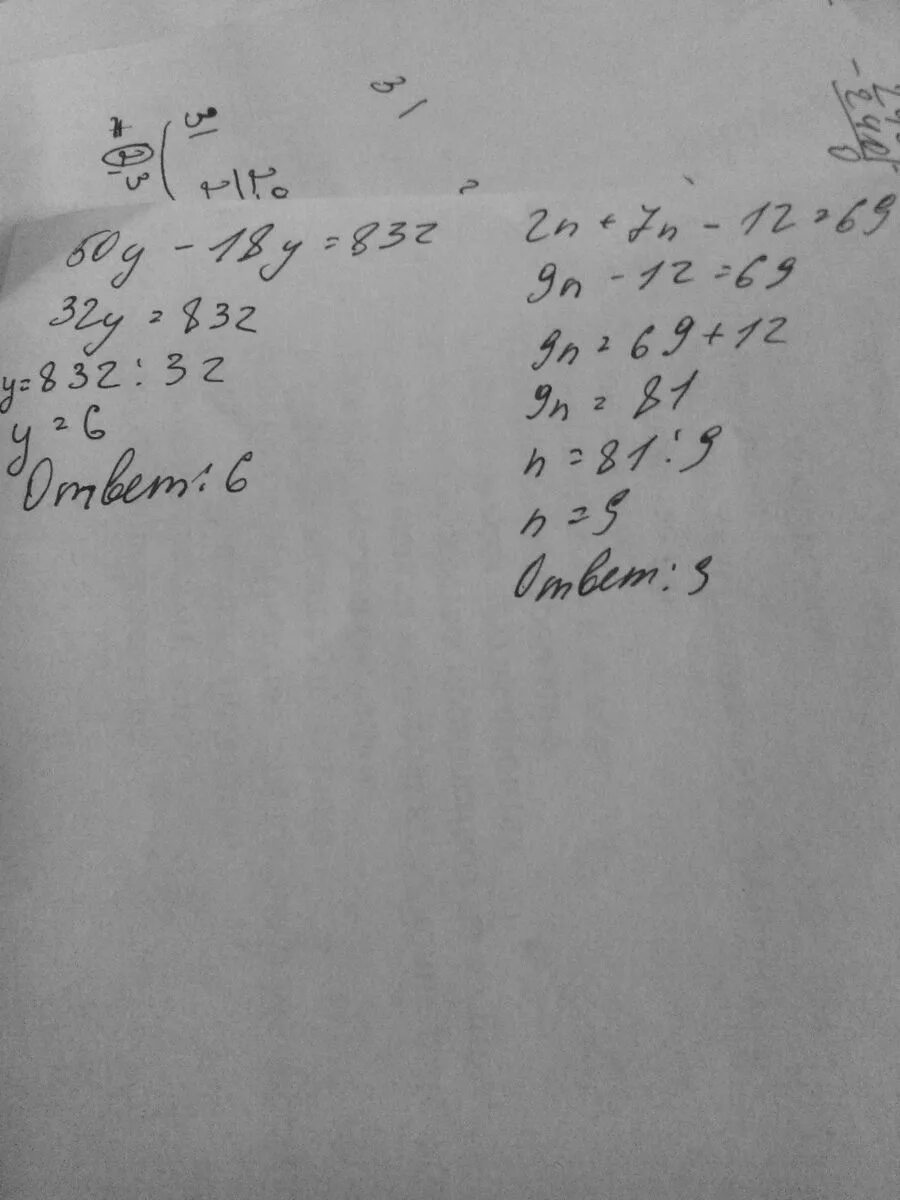 50y - 18y = 832
32y = 832
y = 832 : 32
y = 6
Ответ: 6
2n + 7n - 12 = 69
9n - 12 = 69
9n = 69 + 12
9n = 81
n = 81 : 9
n = 9
Ответ: 9